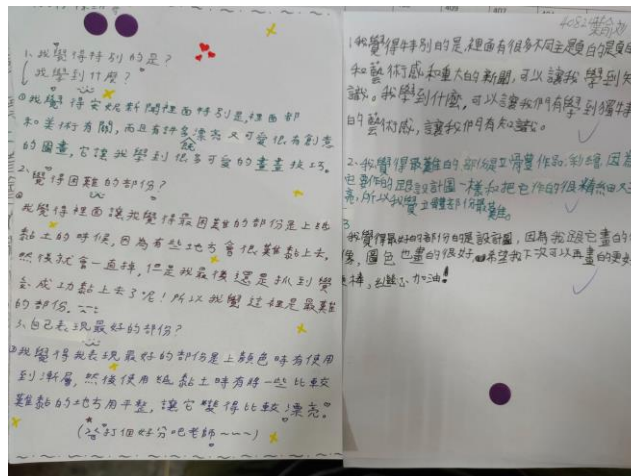 1.我覺得特別的是?
(我學到什麼?
我覺得安妮新聞裡面特別是,裡面都
和美術有關,而且有許多漂亮又可愛很有創意
的圖畫,它讓我學到很多可愛的畫畫技巧。
2.覺得困難的部份?
我覺得裡面讓我覺得最困難的部份是上紙
黏土的時候,因為有些地方會很難黏上去,
然後就會一直掉,但是我最後還是抓到
成功黏上去了呢!所以我覺這裡是最難
的部份。
3.自己表現最好的部份?
我覺得我表現最好的部份是上顏色時有使用
到漸層,然後使用紙黏土時有將一些比較
難黏的地方用平整,讓它變得比較漂亮。
(給打個好分吧老師~~~)
40824
1.我覺得特別的是,裡面有很多不同主題的
和藝術感和重大的新聞,可以讓我學到知
識。我學到什麼,可以讓我們有學到獨特
的藝術感,讓我們有知識。
2.我覺得最難的部份是立體作品彩繪,因為
也要作的跟設計圖一樣和把它作的很精細又
亮,所以我覺立體部份最難。
3
我覺得最好的部份的是設計圖,因為我跟它畫的
像,圖色也畫的很好,希望我下次可以再畫的更
棒,繼續加油!